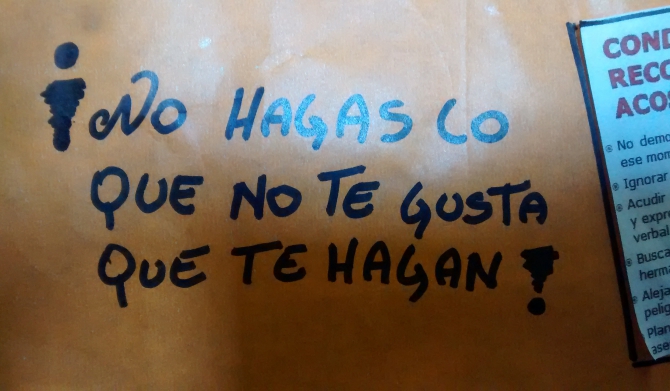 ¡NO HAGAS LO
QUE NO TE GUSTA
QUE TE HAGAN!
COND
RECO
ACOS
No demo
ese mom
Ignorar
Acudir
y expr
verbal
Busca
herma
Aleja
pelig
Plan
ase